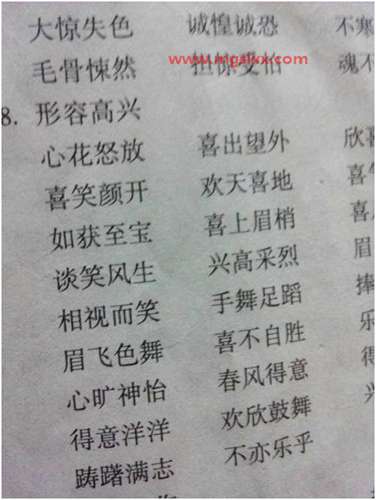 大惊失色 诚惶诚恐 不寒
毛骨悚然 担惊受怕 魂不
8. 形容高兴
心花怒放 喜出望外 欣喜
喜笑颜开 欢天喜地 喜
如获至宝 喜上眉梢 喜
谈笑风生 兴高采烈 眉
相视而笑 手舞足蹈 捧
眉飞色舞 喜不自胜 乐
心旷神怡 春风得意
得意洋洋 欢欣鼓舞
踌躇满志 不亦乐乎